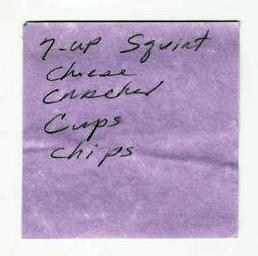 7-up Squirt
Cheese
Cracker
Cups
Chips